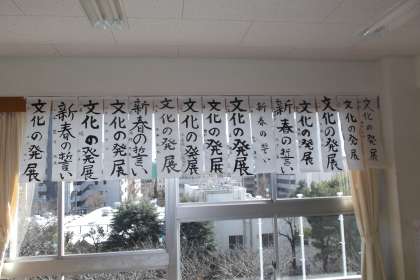 文化の発展
新春の誓い
文化の発展
文化の発展
新春の誓い
文化の発展
文化の発展
文化の発展
文化の発展
新春の誓い
新春の誓い
文化の発展
文化の発展
文化の発展
文化の発展